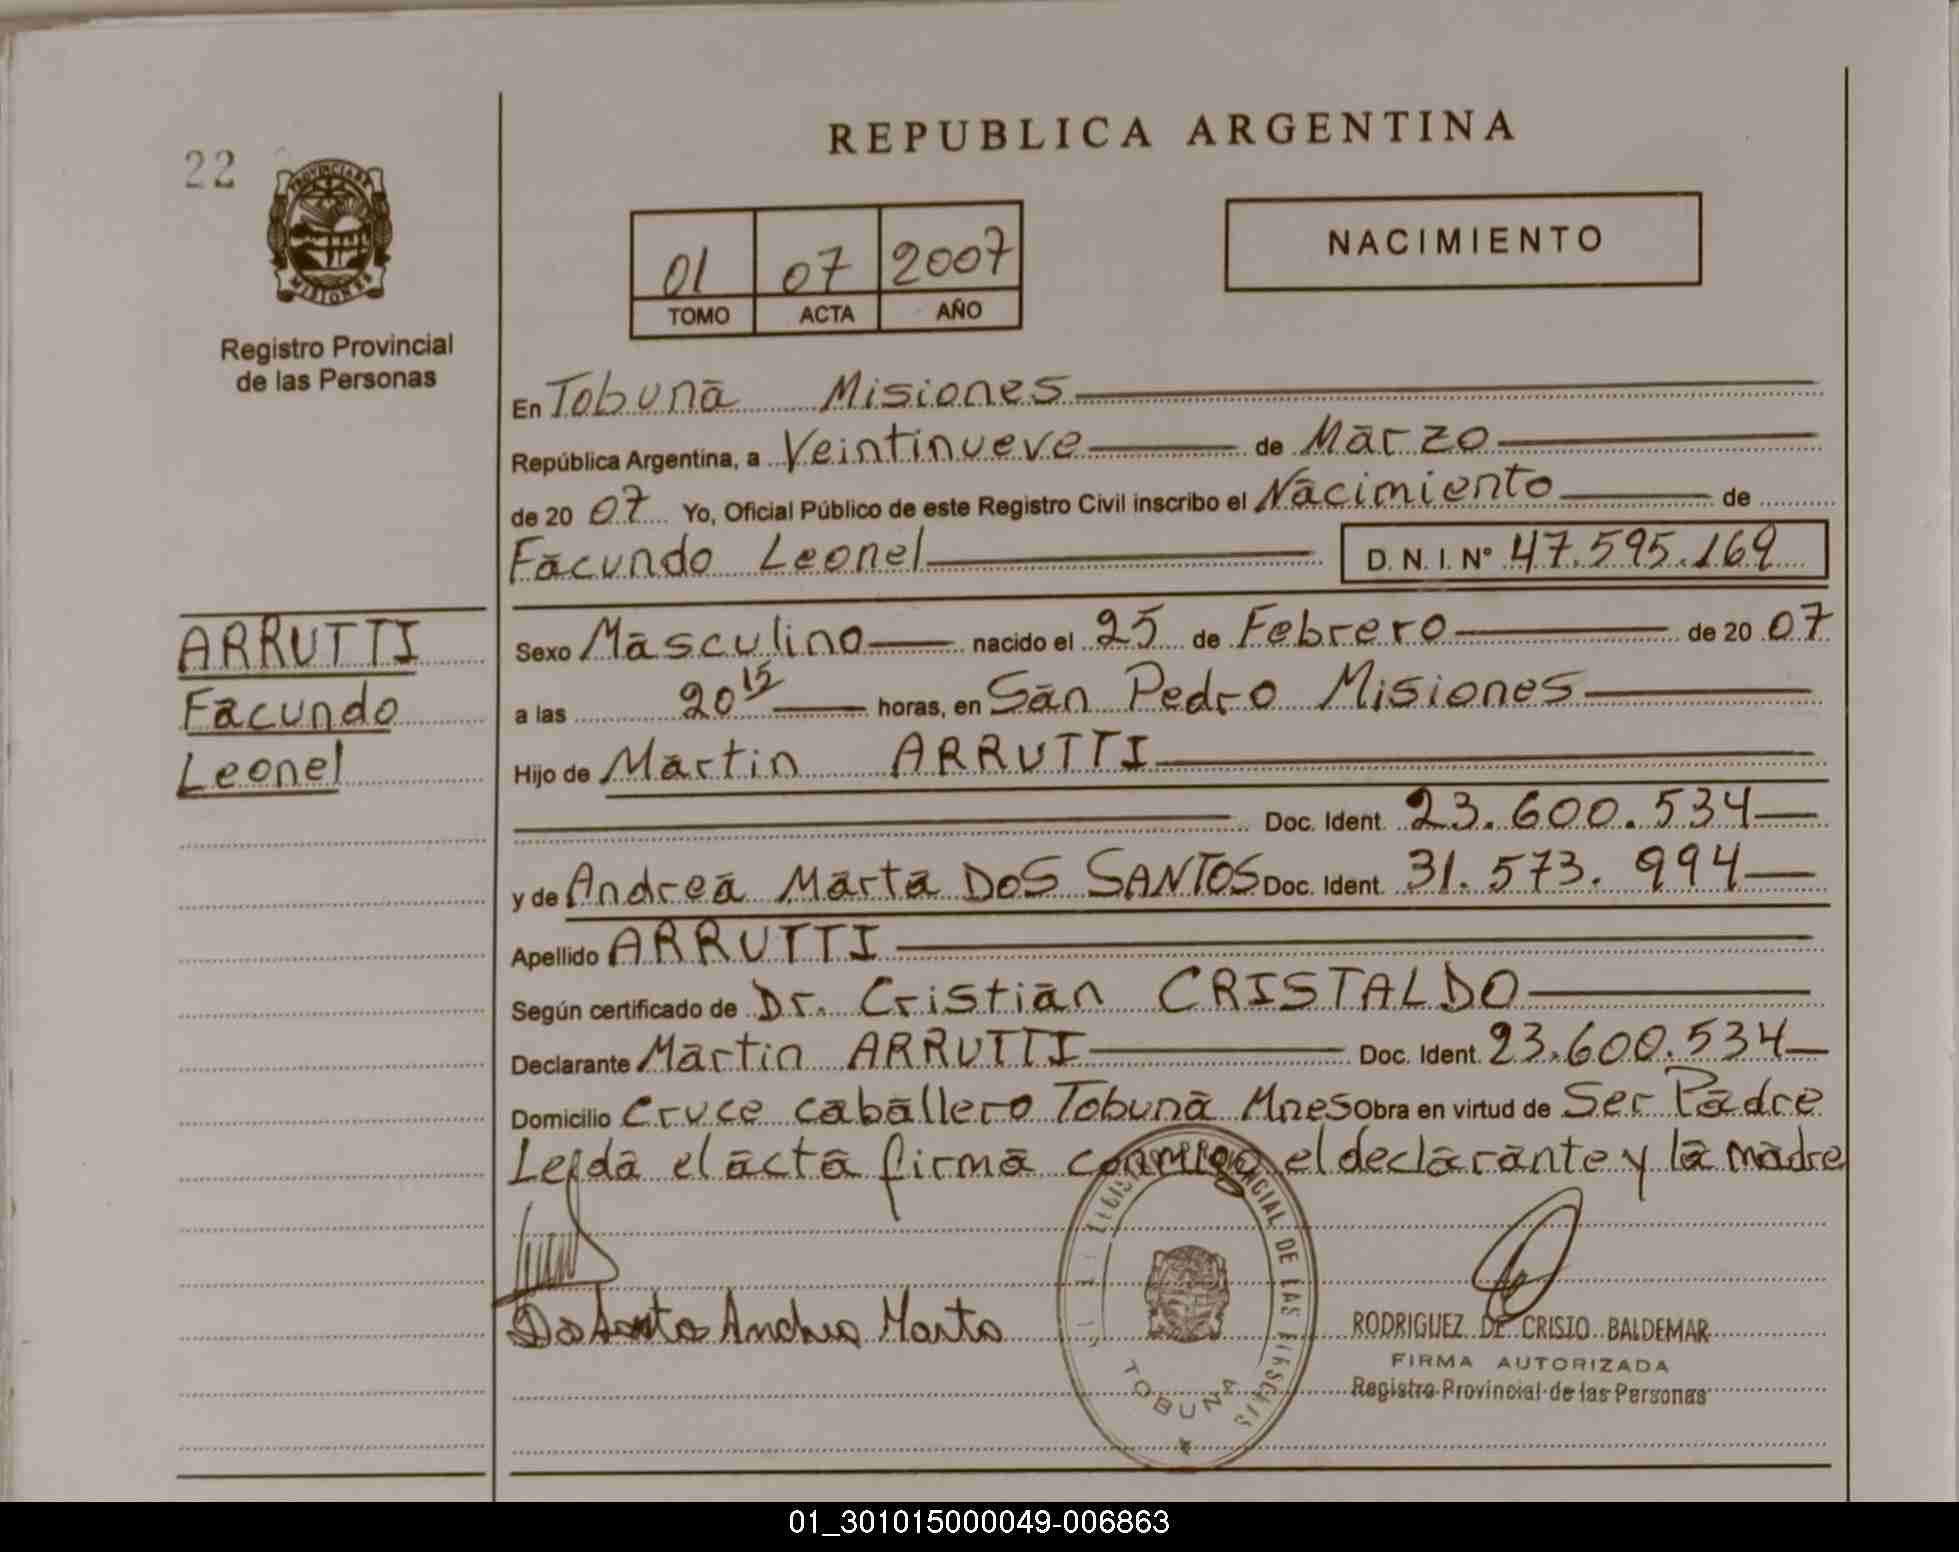 REPUBLICA ARGENTINA
22
PROVINCIA DE
MISIONES
Registro Provincial
de las Personas
01 07 2007
TOMO ACTA AÑO
NACIMIENTO
En Tobuna Misiones
República Argentina, a Veintinueve de Marzo
de 20 07 Yo, Oficial Público de este Registro Civil inscribo el Nacimiento de
Facundo Leonel D. N. I. Nº 47.595.169
ARRUTTI
Facundo
Leonel
Sexo Masculino nacido el 25 de Febrero de 20 07
a las 20 15 horas, en San Pedro Misiones
Hijo de Martin ARRUTTI
Doc. Ident. 23.600.534
y de Andrea Marta DOS SANTOS Doc. Ident. 31.573.994
Apellido ARRUTTI
Según certificado de Dr. Cristian CRISTALDO
Declarante Martin ARRUTTI Doc. Ident. 23.600.534
Domicilio Cruce caballero Tobuna Mnes Obra en virtud de Ser Padre
Leida el acta firma conmigo el declarante y la madre
Andrea Marta
PROVINCIAL DE LAS
TOBUNA
RODRIGUEZ DE CRISTO BALDEMAR
FIRMA AUTORIZADA
Registro Provincial de las Personas
01_301015000049-006863